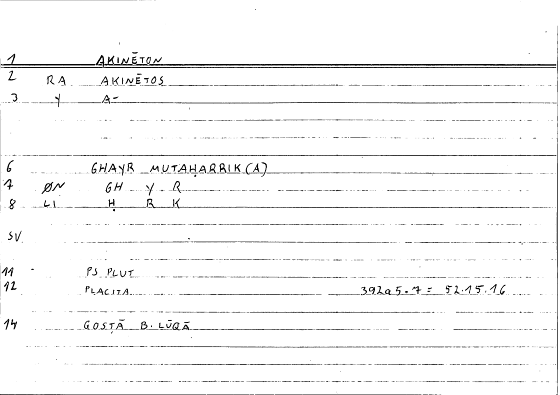 1 AKINĒTON
2 RA AKINĒTOS
3 Y A-
6 GHAYR MUTAḤARRIK(A)
7 ØN GH Y R
8 LI Ḥ R K
SV
11 PS PLUT
12 PLACITA 392a5.7 = 52.15.16
14 QOSṬĀ B. LŪQĀ